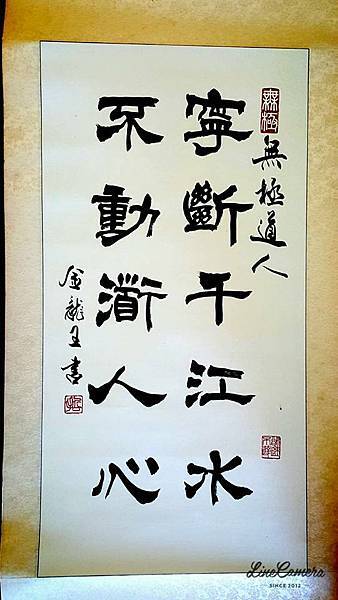 無極
無極道人
寧斷千江水
不動衜人心
金龍王書
LineCamera
SINCE 2012